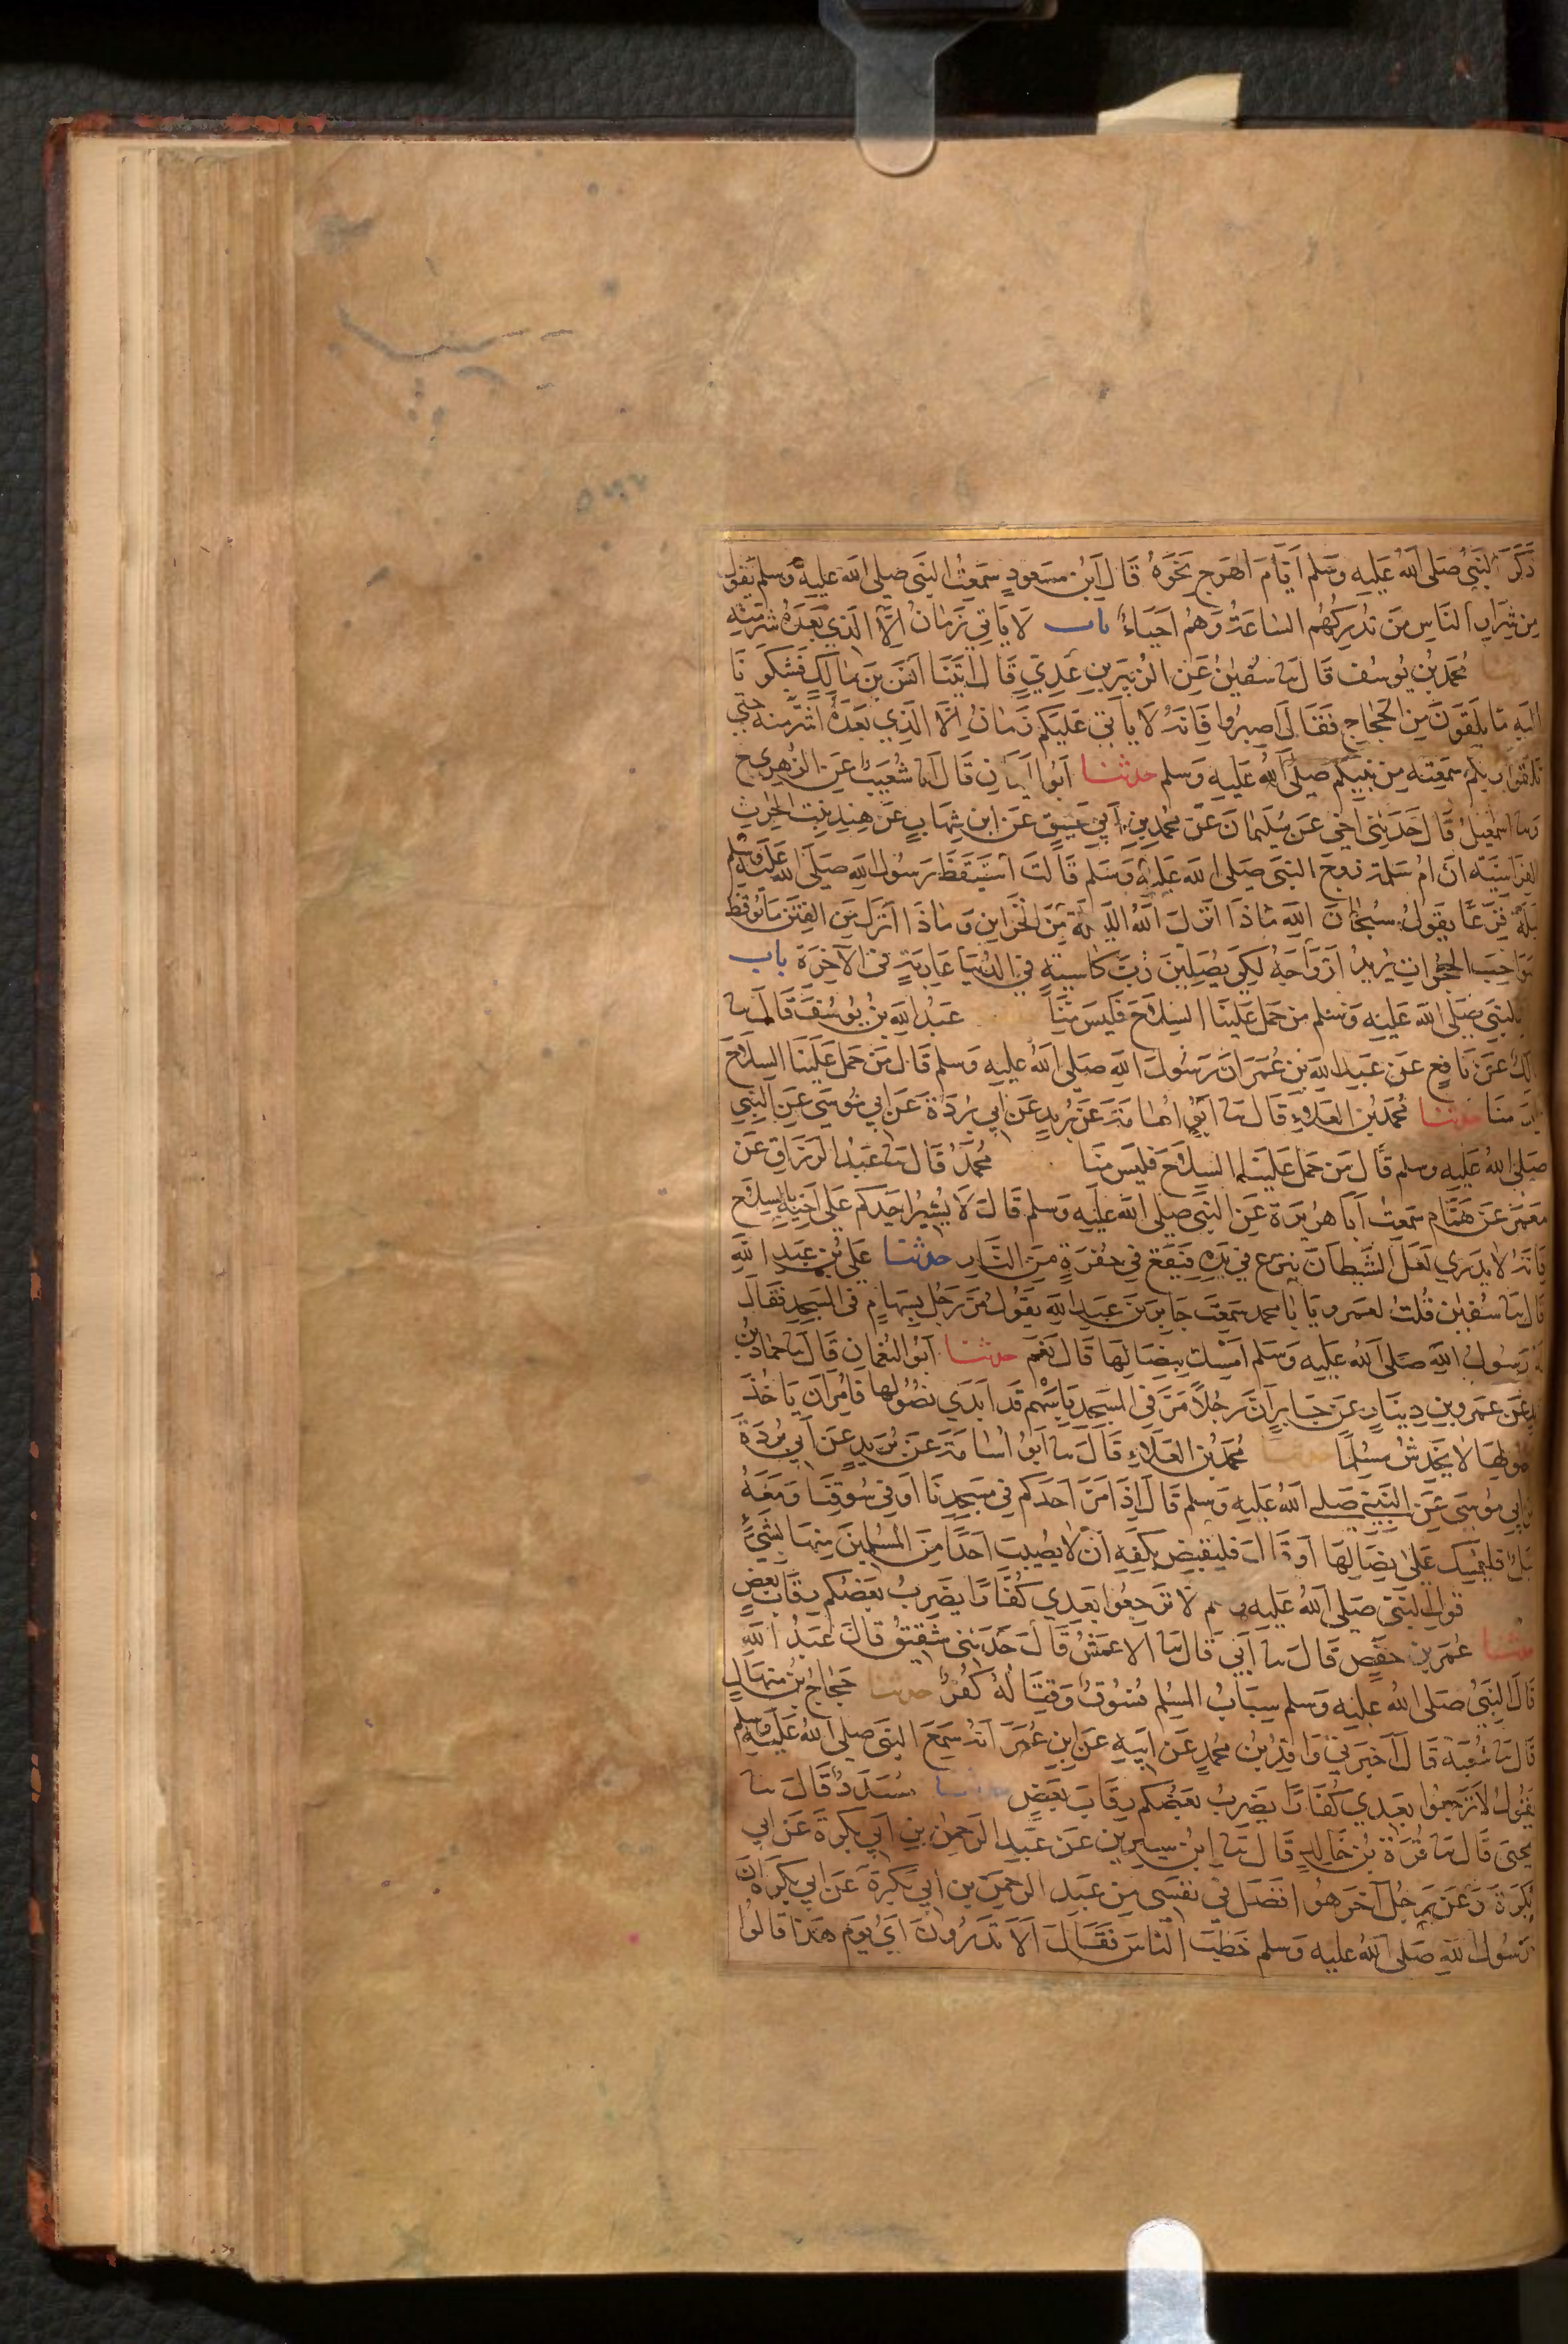 ذَكَرَ النَّبِيُّ صَلَّى اللهُ عَلَيهِ وَسَلم اَيَّامَ الهَرجِ نَحْوَهُ قَالَ ابْنُ مَسعودٍ سَمِعْتُ النَّبي صلى الله عليه وسلم يَقولُ
مِن شِرَارِ النَّاسِ مَن تُدرِكُهُم السَاعَةُ وَهُم اَحيَاءٌ باب لَا يَاتي زَمَانٌ اِلَّا الَّذي بَعدَهُ شَرٌّ مِنه
محمد بن يُوسُف قَالَ ثنا سُفيٰنُ عَنِ الزُبَيرِ بنِ عَدِيٍّ قَالَ اَتَيْنَا اَنسَ بنَ مَالِكٍ فَشَكَونَا
اِلَيهِ مَا يَلقَونَ مِنَ الحَجّاجِ فَقَالَ اصبِرُوا فَاِنَّهُ لَا يَاتي عَلَيكُم زَمَانٌ اِلَّا الَّذِي بَعدَهُ اشَرُّ منه حتى
تلقوا ربكم سَمِعتُه مِن نَبِيكُم صَلَى اللهُ عَليهِ وَسلم حدثنا اَبُوا اليَمَانِ قَالَ انا شُعَيبٌ عَنِ الزُهرِي ح
وثنا اسمٰعيلُ قَالَ حَدَثَني اَخي عَن سُلَيمَانَ عَن محمد بنِ اَبي عَتيقٍ عَن ابنِ شِهَابٍ عَن هِندٍ بِنتِ الحٰرثِ
الفراسيَّةِ انَّ امَّ سَلَمَة زوجَ النبيِّ صَلى الله عَليه وَسَلم قَالَت استَيقَظَ رَسُولُ اللهِ صَلَى اللهُ عَلَيهِ وسلم
لَيلةً فَزِعًا يَقولُ سُبحَانَ اللهِ مَاذَا انزَلَ اللهُ اللَّيلَةَ مِنَ الخَزاينِ وَمَاذَا اُنزِلَ مِنَ الفِتَنِ مَن يُوقِظُ
صَوَاحِبَ الحُجُرَاتِ يُرِيدُ اَزوَاجَهُ لِكَي يُصَلِينَ رُبَّ كَاسِيَةٍ في الدُنيَا عَارِيَةٍ في الآخِرَةِ باب
النَّبي صَلَى الله عَلَيهِ وَسَلم مَن حَمَلَ عَلَينَا السِلَاحَ فَلَيسَ مِنَّا عَبدُ اللهِ بنُ يُوسُفَ قَالَ انا
مالكٌ عَن نَافِعٍ عَن عَبدِ اللهِ بنِ عُمَرَ انَّ رَسُولَ اللهِ صَلَى اللهُ عَليهِ وَسلم قَالَ مَن حَمَلَ عَلَينَا السِلَاحَ
فليسَ منَا حدثنا مُحَمدُ بنُ العَلَاءِ قَالَ ثنا اَبُو اُسَامَةَ عَن بُرَيدٍ عَن اَبي بُردَةَ عَن اَبي مُوسَى عَنِ النَبِي
صَلى اللهُ عَليه وسلم قَالَ مَن حَمَلَ عَلَينَا السِلَاحَ فَلَيسَ مِنَا مُحَمَّدٌ قَالَ ثنا عَبدُ الرَزَّاقِ عَن
مَعمَرٍ عَن هَمَّامٍ سَمِعتُ اَبَا هُرَيرَةَ عَنِ النَّبي صلى الله عليه وسلم قَالَ لَا يُشِيرُ احَدُكُم عَلَى اَخِيهِ بالسِلَاحِ
فَاِنَّهُ لَا يَدرِي لَعَلَّ الشَيطَانَ يَنزِع في يَدِهِ فَيَقَعُ في حُفرَةٍ مِنَ النَّارِ حدثنا عَليُّ بنُ عَبدِ اللهِ
قَالَ ثنا سُفيٰن قُلتُ لعَمرٍو يَا بَا محمدٍ سَمِعتَ جَابِرَ بنَ عَبدِ اللهِ يَقُولُ مَرَّ رَجُلٌ بِسِهَامٍ في المَسجِدِ فَقَالَ
لَهُ رَسُولُ اللهِ صَلَى اللهُ عَليهِ وَسَلم اَمسِك بِنِصَالِهَا قَالَ نَعَم حدثنا اَبُو النُعمَانِ قَالَ ثنا حَمَادُ بنُ
زيدٍ عَن عَمرِو بنِ دِينَارٍ عَن جَابِرٍ اَنَّ رَجُلاً مَرَّ في المَسجِدِ بِاَسهُمٍ قَد اَبدَى نُصُولَها فَاُمِرَ اَن يَاخُذَ
بنُصُولِهَا لَا يَخدِشُ مُسلِمًا حدثنا مُحَمدُ بنُ العَلَاءِ قَالَ ثنا اَبُو اُسَامَةَ عَن بُرَيدٍ عَن اَبي بُردَةَ
عن اَبي مُوسَى عَنِ النَّبيِ صَلى اللهُ عَليهِ وَسلم قَالَ اِذَا مَرَّ اَحَدُكُم في مَسجِدِنَا اَو في سُوقِنَا وَمَعَهُ
نَبلٌ فَليُمسِك عَلَى نِصَالِهَا اَو قَالَ فَليَقبِض بِكَفِّهِ اَن لَا يُصِيبَ اَحَدًا مِنَ المُسلِمينَ مِنهَا بشَيءٍ
قول النَبي صَلَى اللهُ عَليهِ وسلم لَا تَرجِعُوا بَعدِي كُفَّارًا يَضرِبُ بَعضُكُم رِقَابَ بَعضٍ
حدثنا عُمَر بن حَفصٍ قَالَ ثنا اَبي قَالَ ثنا الاعمَشُ قَالَ حَدَثَني شَقِيقٌ قَالَ عَبدُ اللهِ
قَالَ النَبيُّ صَلَى اللهُ عليهِ وسلم سِبَابُ المُسلِمِ فُسُوقٌ وَقِتَالُهُ كُفرٌ حدثنا حَجَّاجُ بنُ مِنهَالٍ
قَالَ ثنا شُعبَةُ قَالَ اَخبَرَني وَاقِدُ بنُ محمدٍ عَن اَبِيهِ عَنِ ابنِ عُمَرَ اَنَّهُ سَمِعَ النبي صلى اللهُ عَلَيهِ وَسلم
يَقُولُ لَا تَرجِعُوا بَعدِي كُفَّارًا يَضرِبُ بَعضُكُم رِقَابَ بَعضٍ حدثنا مُسَدَدٌ قَالَ ثنا
يَحيَى قَالَ ثنا قُرَةُ بنُ خَالِدٍ قَالَ ثنا ابنُ سِيرِينَ عَن عَبدِ الرَحمٰنِ بنِ اَبي بَكرَةَ عَن اَبي
بَكرَةَ وَعَن رَجُلٍ آخَرَ هُوَ افضَلُ في نَفسِي مِن عَبدِ الرَحمٰنِ بنِ اَبي بَكرَةَ عَن اَبي بَكرَةَ اَنَّ
رَسُولَ اللهِ صَلى اللهُ عليهِ وَسلم خَطَبَ النَّاسَ فَقَالَ اَلَا تَدرُونَ اَيُّ يَومٍ هَذَا قَالُوا